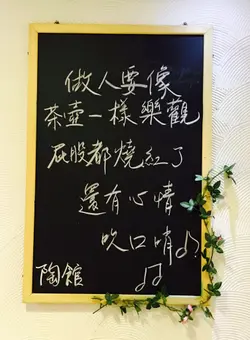 做人要像
茶壺一樣樂觀
屁股都燒紅了
還有心情
吹口哨♪?
♫
陶館